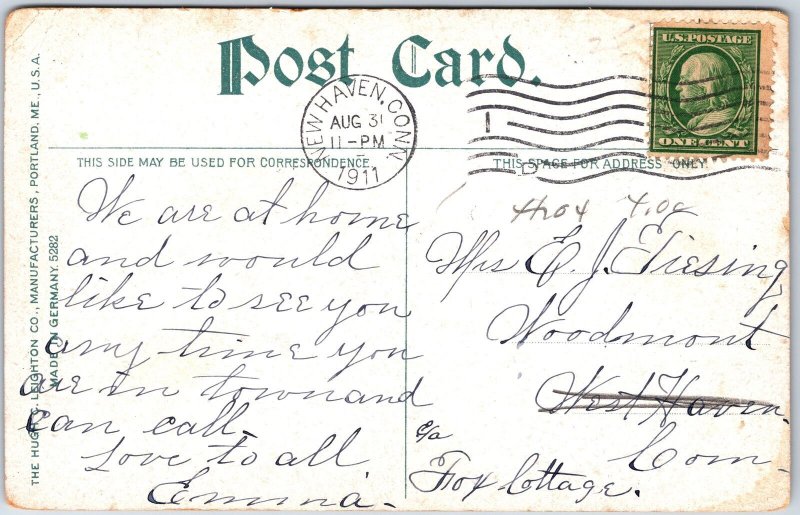 Post Card.
NEW HAVEN, CONN.
AUG 31
11-PM
1911
U.S. POSTAGE
ONE CENT
THIS SIDE MAY BE USED FOR CORRESPONDENCE
THIS SPACE FOR ADDRESS ONLY
THE HUGH C. LEIGHTON CO., MANUFACTURERS, PORTLAND, ME., U.S.A.
MADE IN GERMANY. 5282
We are at home
and would
like to see you
any time you
are in town and
can call.
Love to all
Emma-
4204 4.00
Mrs E. J. Tiesing
Woodmont
West Haven.
Conn-
c/o
Fox Cottage.